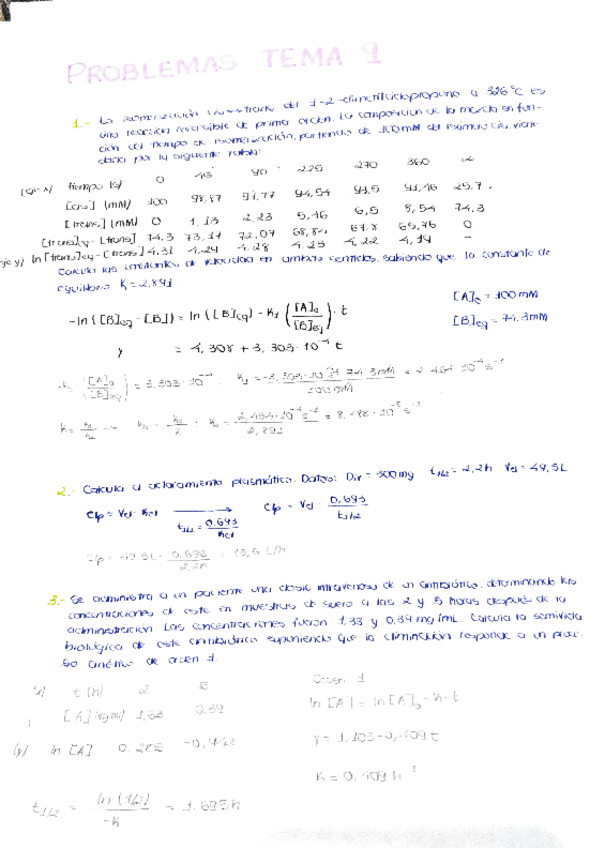 PROBLEMAS TEMA 1
1.- La isomerización del 1-2-dimetilciclopropano a 326°C es
una reacción reversible de primer orden. La composición de la mezcla en fun-
ción del tiempo de isomerización, partiendo de 100mM del isómero cis, viene
dada por la siguiente tabla:
tiempo (s) 0 45 90 225 270 360 ∞
[cis] (mM) 100 98,87 94,54 93,5 91,46 25,7
[trans] (mM) 0 1,13 2,23 5,46 6,5 8,54 74,3
[trans]eq - [trans] 74,3 73,17 72,07 68,84 67,8 65,76 0
ln [trans]eq - [trans] 4,31 4,29 4,28 4,23 4,22 4,19 -
Calcula las constantes de velocidad en ambos sentidos, sabiendo que la constante de
equilibrio K = 2,891
-ln ([B]eq - [B]) = ln ([B]eq) - K1 ([A]o / [B]eq) · t
[A]o = 100 mM
[B]eq = 74,3mM
y = 4,308 + 3,303·10⁻⁴ t
2.- Calcula el aclaramiento plasmático. Datos: Div = 500mg t1/2 = 2,2h Vd = 49,5L
Clp = Vd · Kel
t1/2 = 0,693 / Kel
Clp = Vd · 0,693 / t1/2
Clp = 49,5L · 0,693 / 2,2h = 15,6 L/h
3.- Se administra a un paciente una dosis intravenosa de un antibiótico, determinando las
concentraciones de este en muestras de suero a las 2 y 5 horas después de la
administración. Las concentraciones fueron 1,33 y 0,39 mg/mL. Calcula la semivida
biológica de este antibiótico suponiendo que la eliminación responde a un proce-
so cinético de orden 1.
(x) t (h) 2 5
Orden 1
[A] 1,33 0,39
ln [A] = ln [A]o - K · t
(y) ln [A] 0,285 -0,942
y = 1,103 - 0,409 t
K = 0,409 h⁻¹
t1/2 = ln (1/2) / -K = 1,695 h